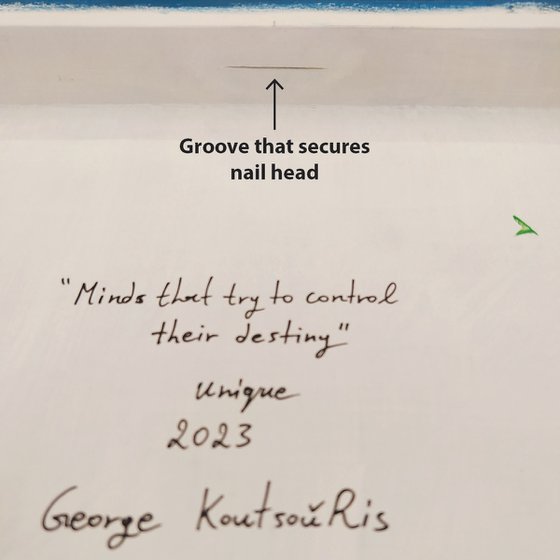 Groove that secures
nail head
"Minds that try to control
their destiny"
Unique
2023
George KoutsoŭRis